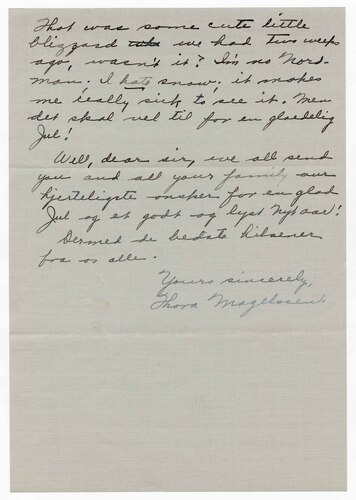 That was some cute little
blizzard we had two weeks
ago, wasn't it? I'm no Nord-
man. I hate snow; it makes
me really sick to see it. Men
det skal vel til for en glaedelig
Jul!
Well, dear sir, we all send
you and all your family our
hjerteligste onsker for en glad
Jul og et godt og lyst Nytaar!
Dermed de bedste hilsener
fra os alle.
Yours sincerely,
Thora Magelssen.